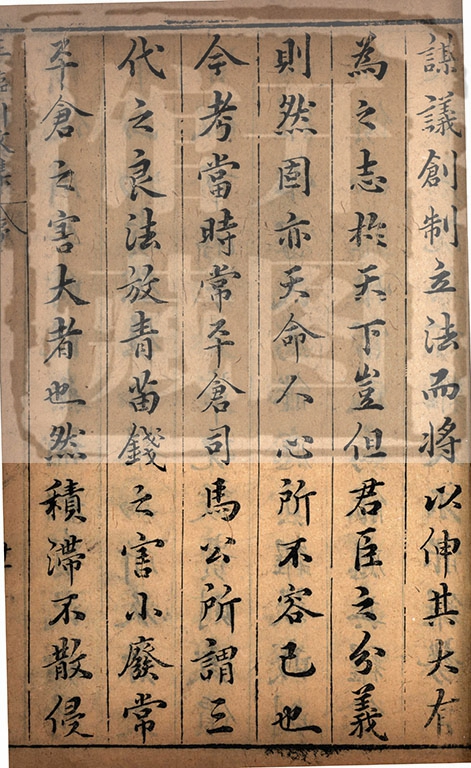 謀議創制立法而將以伸其大有
為之志於天下豈但君臣之分義
則然固亦天命人心所不容已也
今考當時常平倉司馬公所謂三
代之良法放青苗錢之害小廢常
平倉之害大者也然積滯不散侵